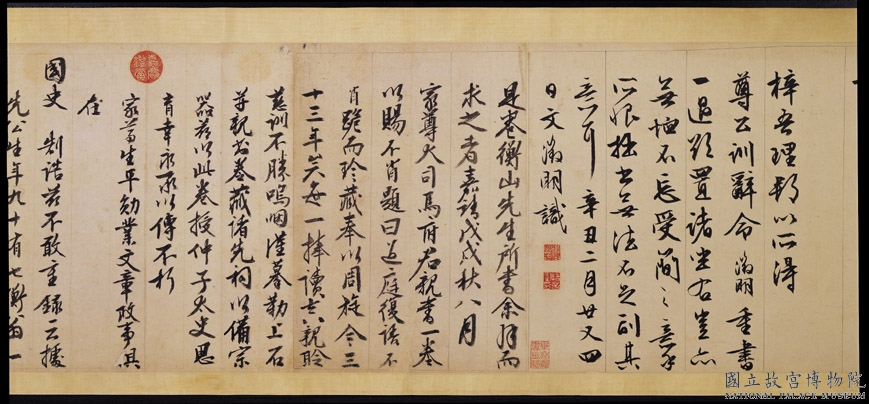 梓吾理郡以所得
尊公訓辭命徵明重書
一過欲置諸坐右豈亦
無恤不忘受簡之意
所恨拙書無法不足副其
意耳 辛丑二月廿又四
日文徵明識
是卷衡山先生所書余拜而
求之者嘉靖戊戌秋八月
家尊大司馬府君親書一卷
以賜不肖題曰過庭復語不
肖跪而珍藏奉以周旋今三
十三年矣每一捧讀親聆
慈訓不勝嗚咽謹摹勒上石
并親書卷藏諸先祠以備宗
器茲以此卷授仲子太史思
育幸永承以傳不朽
家尊生平勛業文章政事俱
在
國史 制誥茲不敢重錄云
先公生年九十有七衡翁一
國立故宮博物院
NATIONAL PALACE MUSEUM